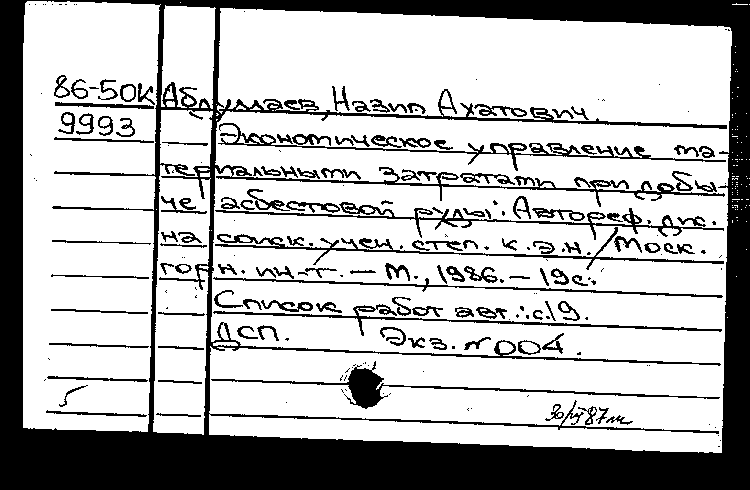 86-50К Абдуллаев, Назип Ахатович.
9993 Экономическое управление ма-
териальными затратами при добы-
че асбестовой руды: Автореф. дис.
на соиск. учен. степ. к.э.н. / Моск.
горн. ин-т. — М., 1986. — 19с.
Список работ авт.: с19.
ДСП. Экз. №004.
5